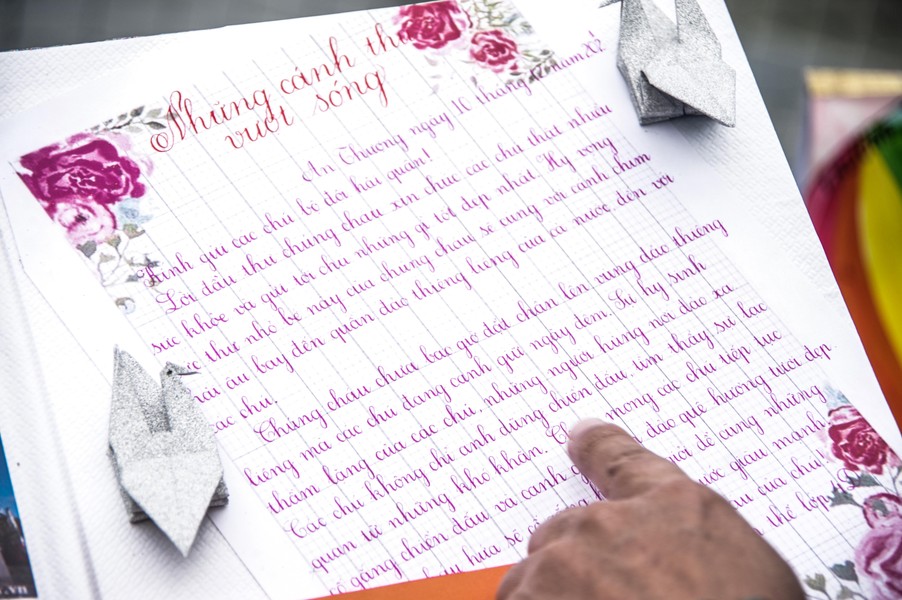 Những cánh thư
vượt sóng
An Thượng ngày 10 tháng năm
Kính gửi các chú bộ đội hải quân!
Lời đầu thư chúng cháu xin chúc các chú thật nhiều
sức khỏe và gửi tới chú những gì tốt đẹp nhất. Hy vọng
thư nhỏ bé này của chúng cháu sẽ cùng với cánh chim
hải âu bay đến quần đảo thiêng liêng của cả nước đến với
các chú.
Chúng cháu chưa bao giờ đặt chân lên vùng đảo thiêng
liêng mà các chú đang canh giữ ngày đêm. Sự hy sinh
thầm lặng của các chú, những người hùng nơi đảo xa
Các chú không chỉ anh dũng chiến đấu, tìm thấy sự lạc
quan tới những khó khăn. mong các chú tiếp tục
cố gắng chiến đấu và canh đảo quê hương tươi đẹp.
hứa sẽ cố để cùng những
nước giàu mạnh
của chú!
thể lớp
.vn